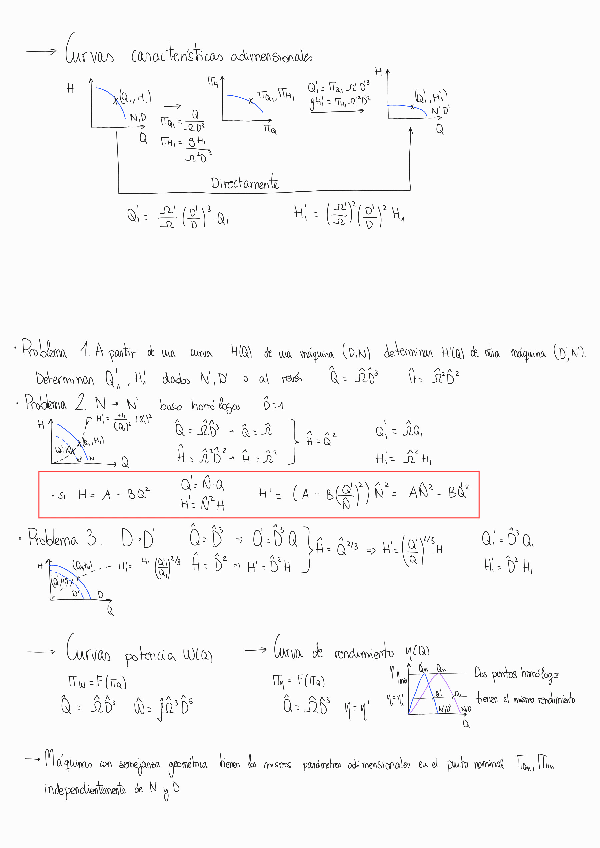 → Curvas características adimensionales
H (Q₁, H₁) N, D Q
→ π_Q₁ = Q/ΩD³
π_H₁ = gH₁/Ω²D²
π_H π_Q₁, π_H₁ π_Q
Q₁' = π_Q₁ Ω'D'³
gH₁' = π_H₁ Ω'²D'²
H (Q₁', H₁') N'D' Q
Directamente
Q₁' = Ω'/Ω (D'/D)³ Q₁ H₁' = (Ω'/Ω)² (D'/D)² H₁
· Problema 1. A partir de una curva H(Q) de una máquina (D,N) determinar H'(Q) de otra máquina (D',N').
Determinar Q₁', H₁' dados N', D' o al revés Q̂ = Ω̂D̂³ Ĥ = Ω̂²D̂²
· Problema 2. N → N' bajo homólogas D̂=1
Q̂ = Ω̂D̂³ → Q̂ = Ω̂
Ĥ = Ω̂²D̂² → Ĥ = Ω̂²
Ĥ = Q̂²
Q₁' = Ω̂Q₁
H₁' = Ω̂²H₁
· Si H = A - BQ² Q' = N̂·Q H' = N̂²H H' = (A - B(Q'/N̂)²)N̂² = AN̂² - BQ'²
· Problema 3. D → D' Q̂ = D̂³ → Q' = D̂³Q
Ĥ = D̂² → H' = D̂²H
Ĥ = Q̂^2/3 ⇒ H' = (Q'/Q)^2/3 H
Q₁' = D̂³Q₁
H₁' = D̂²H₁
→ Curvas potencia Ẇ(Q)
π_W = F(π_Q)
Q̂ = Ω̂D̂³ Ŵ = ρ̂Ω̂³D̂⁵
→ Curva de rendimiento η(Q)
π_η = F(π_Q)
Q̂ = Ω̂D̂³ η = η'
Dos puntos homólogos
tienen el mismo rendimiento
→ Máquinas con semejanza geométrica tienen los mismos parámetros adimensionales en el punto nominal π_Qn, π_Hn
independientemente de N y D